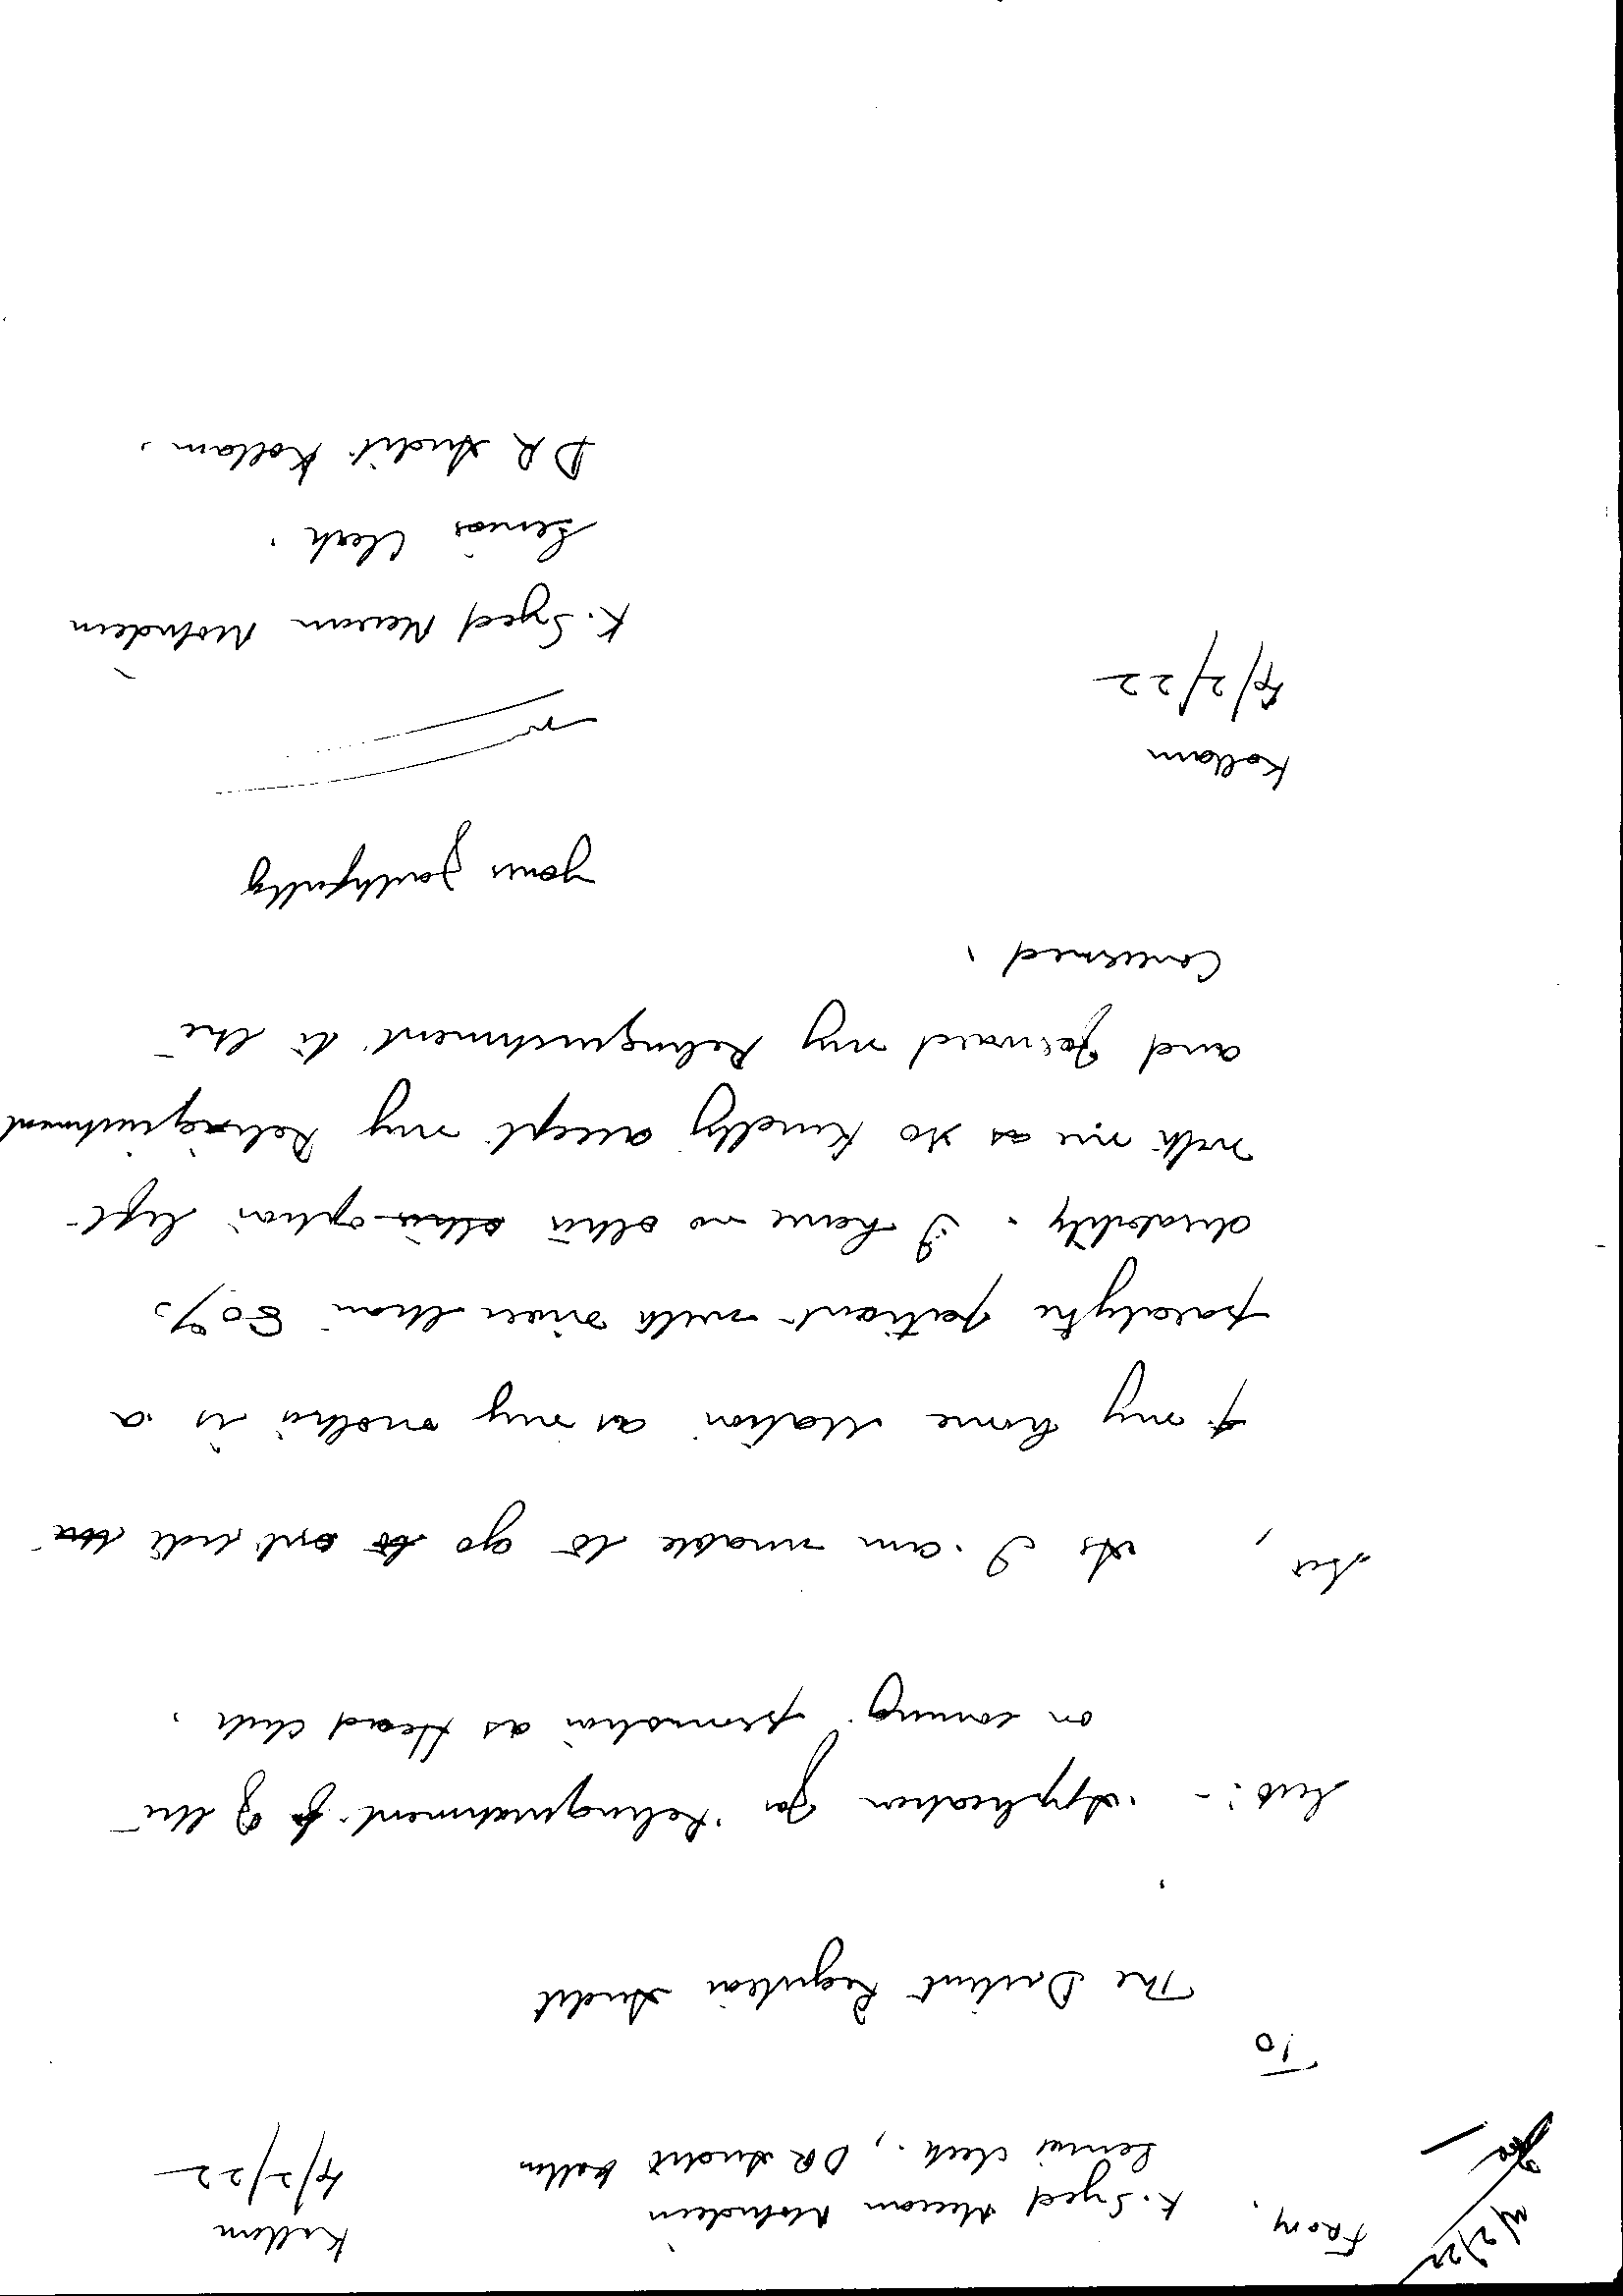 From,
K. Syed Meeran Mohideen
Senior Clerk, DR Audit Kollam
Kollam
4/2/22
To
The District Registrar Audit
Sub:- Application for Relinquishment of the
on coming promotion as Head Clerk.
Sir,
As I am unable to go out side
my home station as my mother is a
paralytic patient with more than 80%
disability. I have no other option left
with me as so kindly accept my Relinquishment
and forward my Relinquishment to the
Concerned.
Yours faithfully
Kollam
4/2/22
K. Syed Meeran Mohideen
Senior Clerk.
DR Audit Kollam.